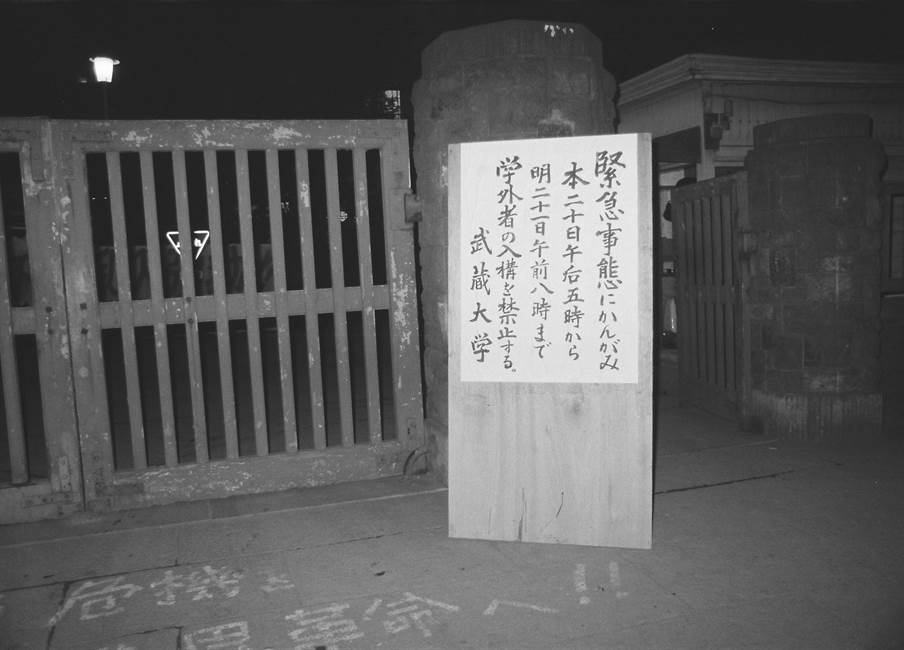 緊急事態にかんがみ
本二十日午后五時から
明二十一日午前八時まで
学外者の入構を禁止する。
武蔵大学
危機
革命へ!!